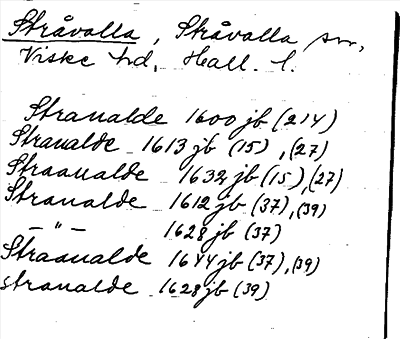 Stråvalla, Stråvalla sn,
Viske hd, Hall. l.
Stranalde 1600 jb (214)
Stranalde 1613 jb (15), (27)
Straanalde 1632 jb (15), (27)
Stranalde 1612 jb (37), (39)
— " — 1628 jb (37)
Straanalde 1644 jb (37), (39)
stranalde 1628 jb (39)